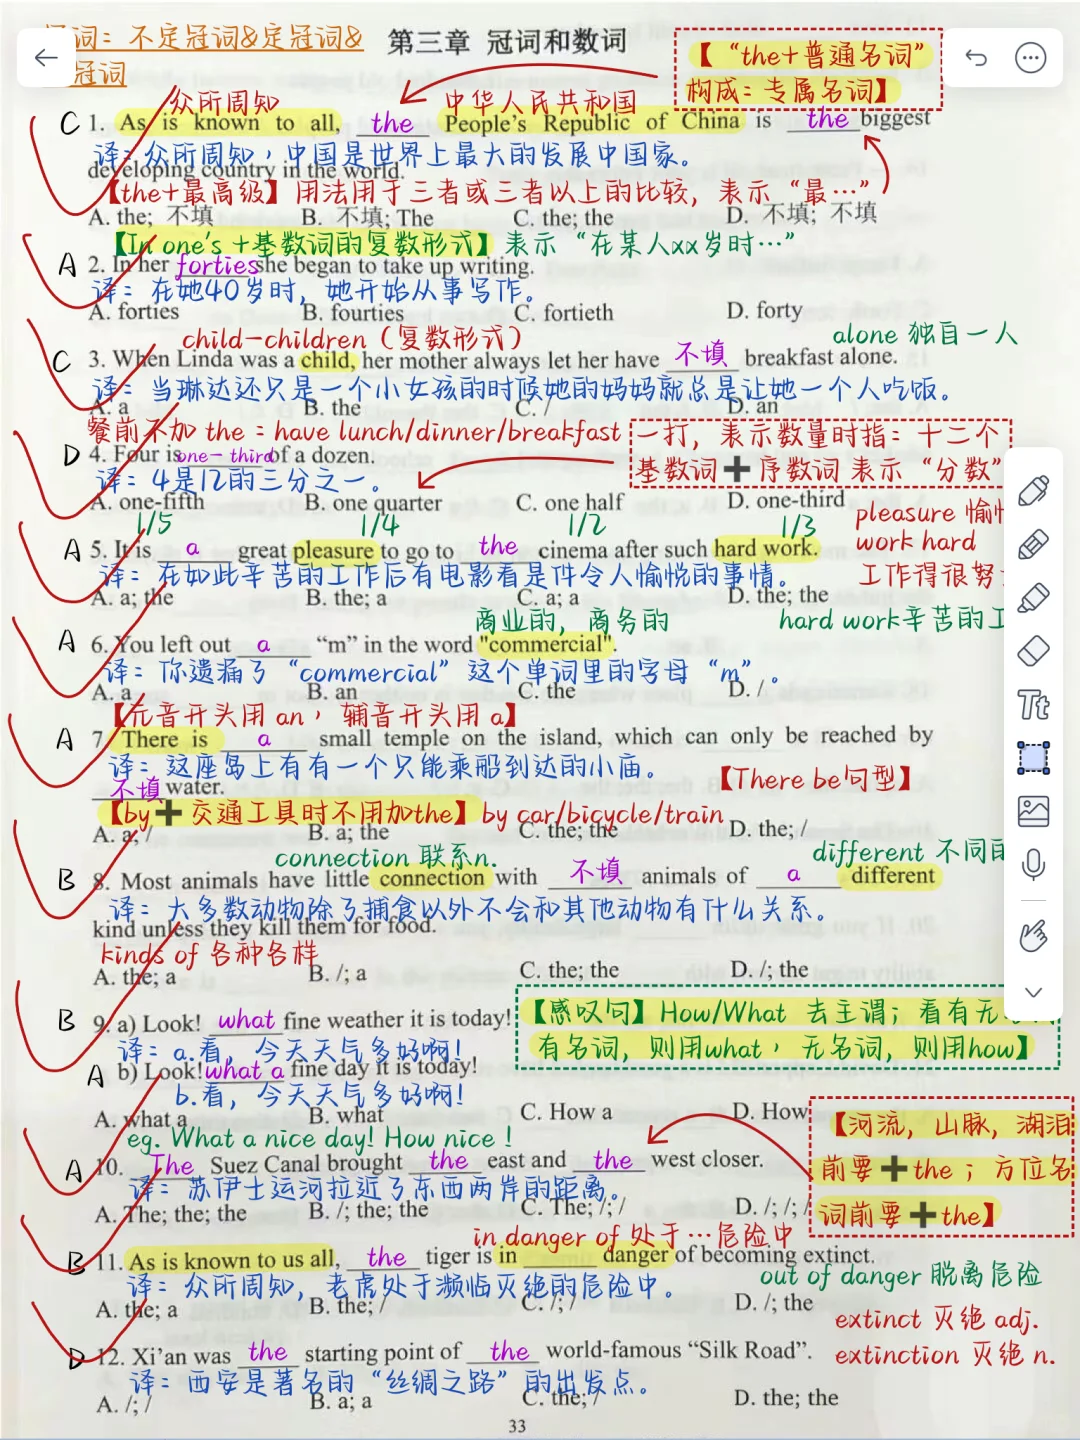 冠词：不定冠词&定冠词&
冠词
第三章 冠词和数词
【“the+普通名词”
构成：专属名词】
众所周知
中华人民共和国
C 1. As is known to all, the People's Republic of China is the biggest
译：众所周知，中国是世界上最大的发展中国家。
developing country in the world.
【the+最高级】用法用于三者或三者以上的比较，表示“最…”
A. the; 不填 B. 不填; The C. the; the D. 不填; 不填
【In one's +基数词的复数形式】表示“在某人xx岁时…”
A 2. In her forties she began to take up writing.
译：在她40岁时，她开始从事写作。
A. forties B. fourties C. fortieth D. forty
child-children（复数形式）
alone 独自一人
C 3. When Linda was a child, her mother always let her have 不填 breakfast alone.
译：当琳达还只是一个小女孩的时候她的妈妈就总是让她一个人吃饭。
A. a B. the C. / D. an
餐前不加 the：have lunch/dinner/breakfast
一打，表示数量时指：十二个
基数词➕序数词 表示“分数”
D 4. Four is one-third of a dozen.
译：4是12的三分之一。
A. one-fifth B. one quarter C. one half D. one-third
1/5 1/4 1/2 1/3
pleasure 愉
work hard
工作得很努
A 5. It is a great pleasure to go to the cinema after such hard work.
译：在如此辛苦的工作后有电影看是件令人愉悦的事情。
A. a; the B. the; a C. a; a D. the; the
商业的，商务的
hard work辛苦的工
A 6. You left out a “m” in the word "commercial".
译：你遗漏了“commercial”这个单词里的字母“m”。
A. a B. an C. the D. /
【元音开头用 an，辅音开头用 a】
A 7. There is a small temple on the island, which can only be reached by
译：这座岛上有有一个只能乘船到达的小庙。
不填 water.
【There be句型】
【by➕交通工具时不用加the】by car/bicycle/train
A. a; / B. a; the C. the; the D. the; /
connection 联系n.
different 不同的
B 8. Most animals have little connection with 不填 animals of a different
译：大多数动物除了捕食以外不会和其他动物有什么关系。
kind unless they kill them for food.
kinds of 各种各样
A. the; a B. /; a C. the; the D. /; the
B 9. a) Look! what fine weather it is today!
译：a.看，今天天气多好啊！
【感叹句】How/What 去主谓；看有无
有名词，则用what，无名词，则用how】
A b) Look! what a fine day it is today!
b.看，今天天气多好啊！
A. what a B. what C. How a D. How
eg. What a nice day! How nice！
【河流，山脉，湖泪
前要➕the；方位名
词前要➕the】
A 10. The Suez Canal brought the east and the west closer.
译：苏伊士运河拉近了东西两岸的距离。
A. The; the; the B. /; the; the C. The; /; / D. /; /; /
in danger of 处于…危险中
B 11. As is known to us all, the tiger is in danger of becoming extinct.
译：众所周知，老虎处于濒临灭绝的危险中。
out of danger 脱离危险
A. the; a B. the; / C. /; / D. /; the
extinct 灭绝 adj.
extinction 灭绝 n.
D 12. Xi'an was the starting point of the world-famous “Silk Road”.
译：西安是著名的“丝绸之路”的出发点。
A. /; / B. a; a C. the; / D. the; the
33
Tt